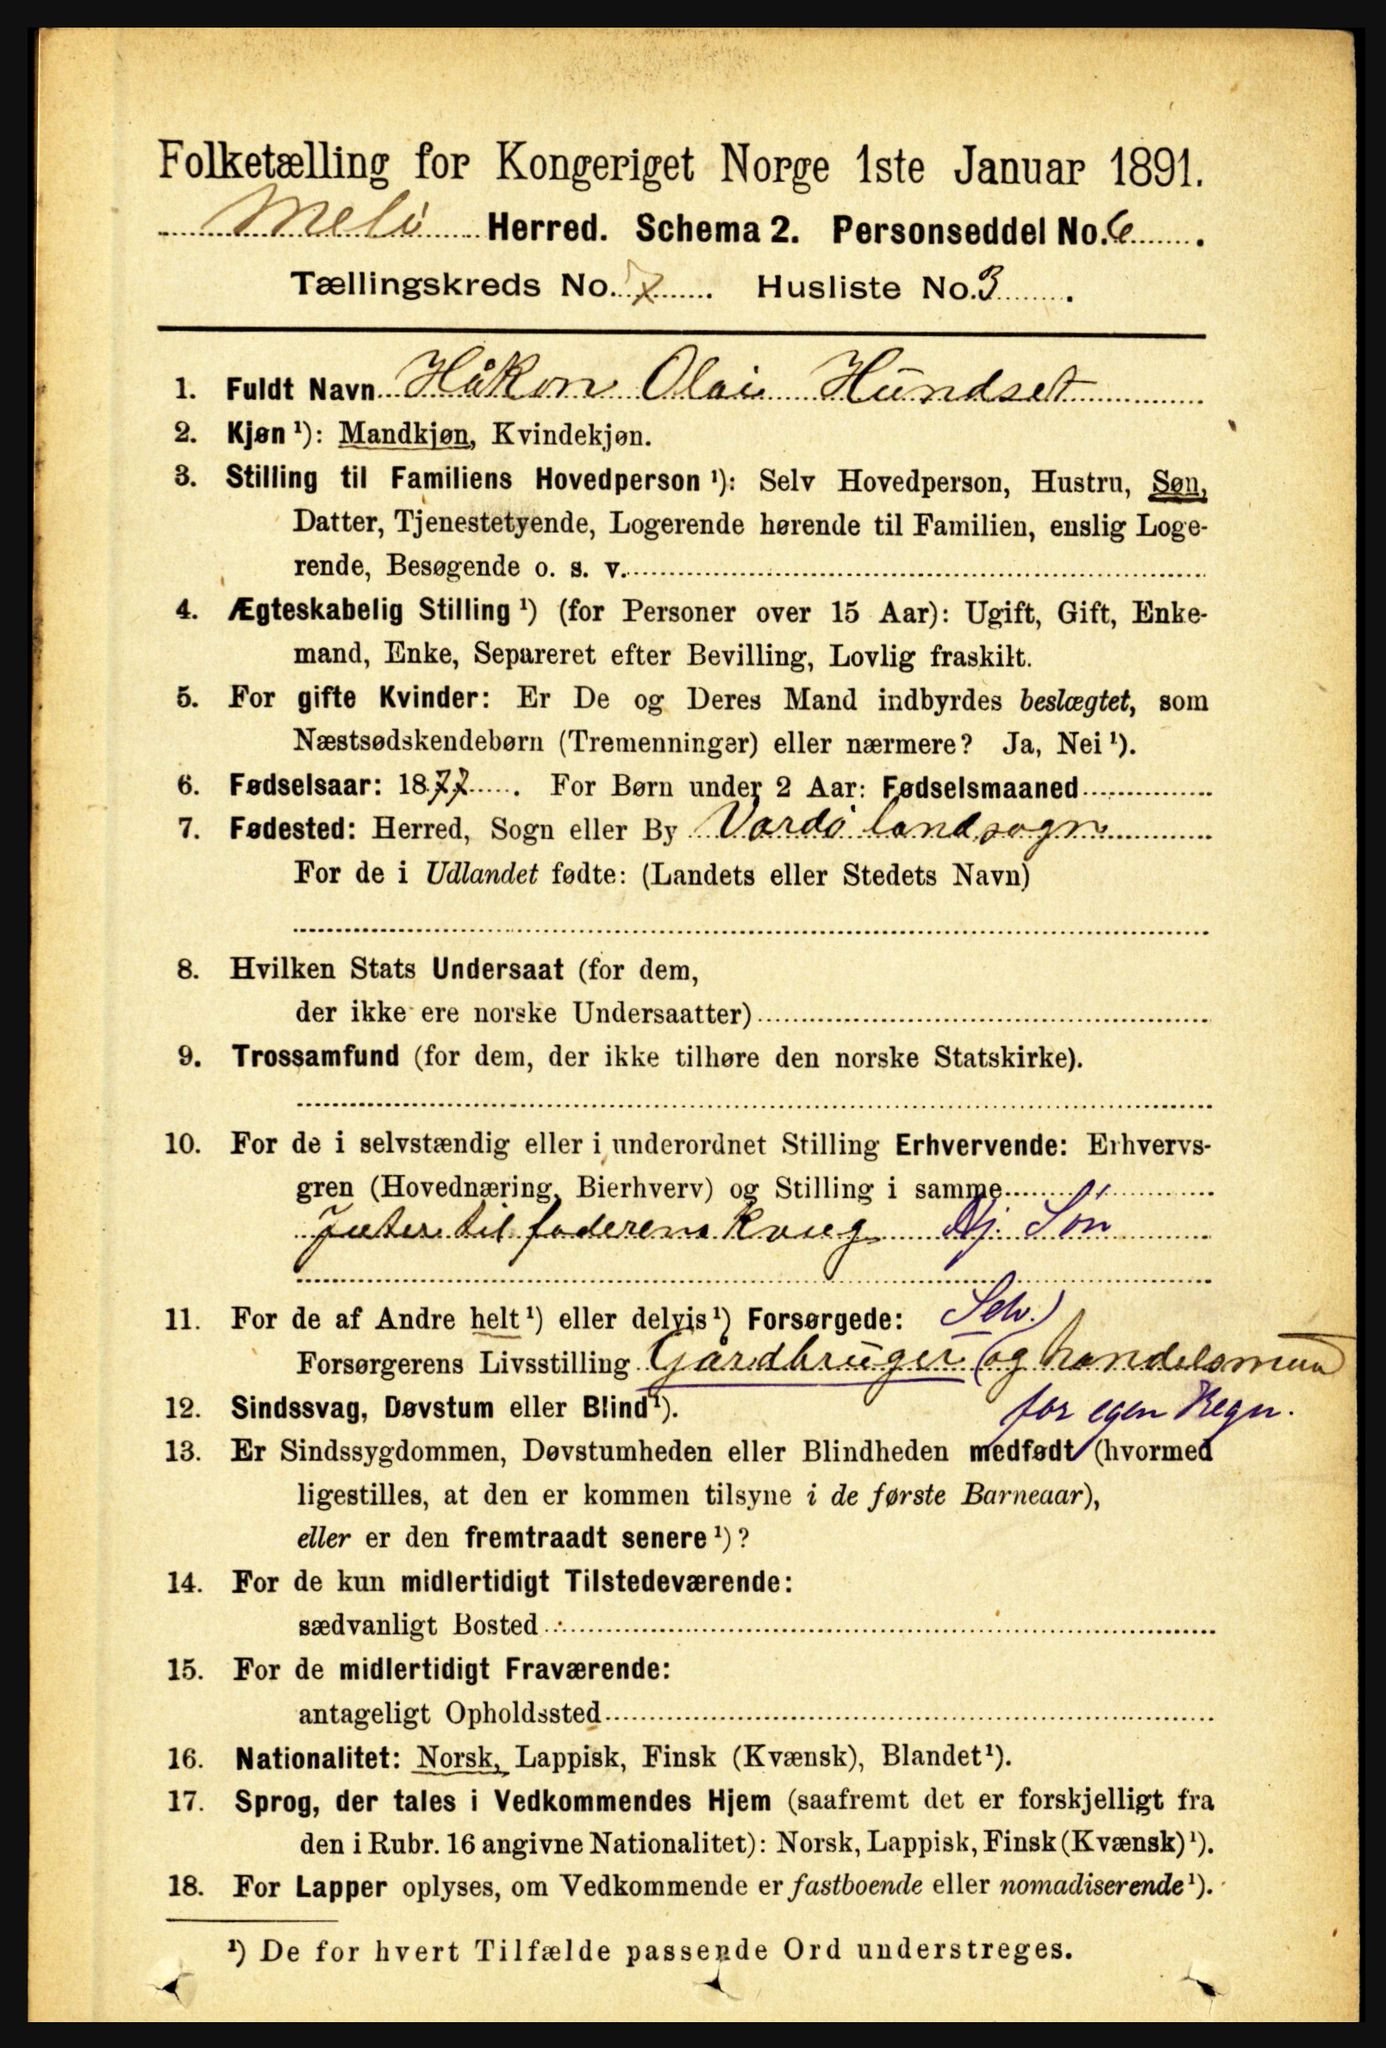 Folketælling for Kongeriget Norge 1ste Januar 1891.
Melö Herred. Schema 2. Personseddel No. 6.
Tællingskreds No. 7. Husliste No. 3.
1. Fuldt Navn Håkon Olai Hundset
2. Kjøn ¹): Mandkjøn, Kvindekjøn.
3. Stilling til Familiens Hovedperson ¹): Selv Hovedperson, Hustru, Søn,
Datter, Tjenestetyende, Logerende hørende til Familien, enslig Loge-
rende, Besøgende o. s. v.
4. Ægteskabelig Stilling ¹) (for Personer over 15 Aar): Ugift, Gift, Enke-
mand, Enke, Separeret efter Bevilling, Lovlig fraskilt.
5. For gifte Kvinder: Er De og Deres Mand indbyrdes beslægtet, som
Næstsødskendebørn (Tremenninger) eller nærmere? Ja, Nei ¹).
6. Fødselsaar: 1877. For Børn under 2 Aar: Fødselsmaaned
7. Fødested: Herred, Sogn eller By Vardö landsogn
For de i Udlandet fødte: (Landets eller Stedets Navn)
8. Hvilken Stats Undersaat (for dem,
der ikke ere norske Undersaatter)
9. Trossamfund (for dem, der ikke tilhøre den norske Statskirke).
10. For de i selvstændig eller i underordnet Stilling Erhvervende: Erhvervs-
gren (Hovednæring, Bierhverv) og Stilling i samme
til faderens Søn
11. For de af Andre helt ¹) eller delvis ¹) Forsørgede: Selv.
Forsørgerens Livsstilling Gårdbruger (og handelsmand)
for egen Regn.
12. Sindssvag, Døvstum eller Blind ¹).
13. Er Sindssygdommen, Døvstumheden eller Blindheden medfødt (hvormed
ligestilles, at den er kommen tilsyne i de første Barneaar),
eller er den fremtraadt senere ¹)?
14. For de kun midlertidigt Tilstedeværende:
sædvanligt Bosted
15. For de midlertidigt Fraværende:
antageligt Opholdssted
16. Nationalitet: Norsk, Lappisk, Finsk (Kvænsk), Blandet ¹).
17. Sprog, der tales i Vedkommendes Hjem (saafremt det er forskjelligt fra
den i Rubr. 16 angivne Nationalitet): Norsk, Lappisk, Finsk (Kvænsk) ¹).
18. For Lapper oplyses, om Vedkommende er fastboende eller nomadiserende ¹).
¹) De for hvert Tilfælde passende Ord understreges.